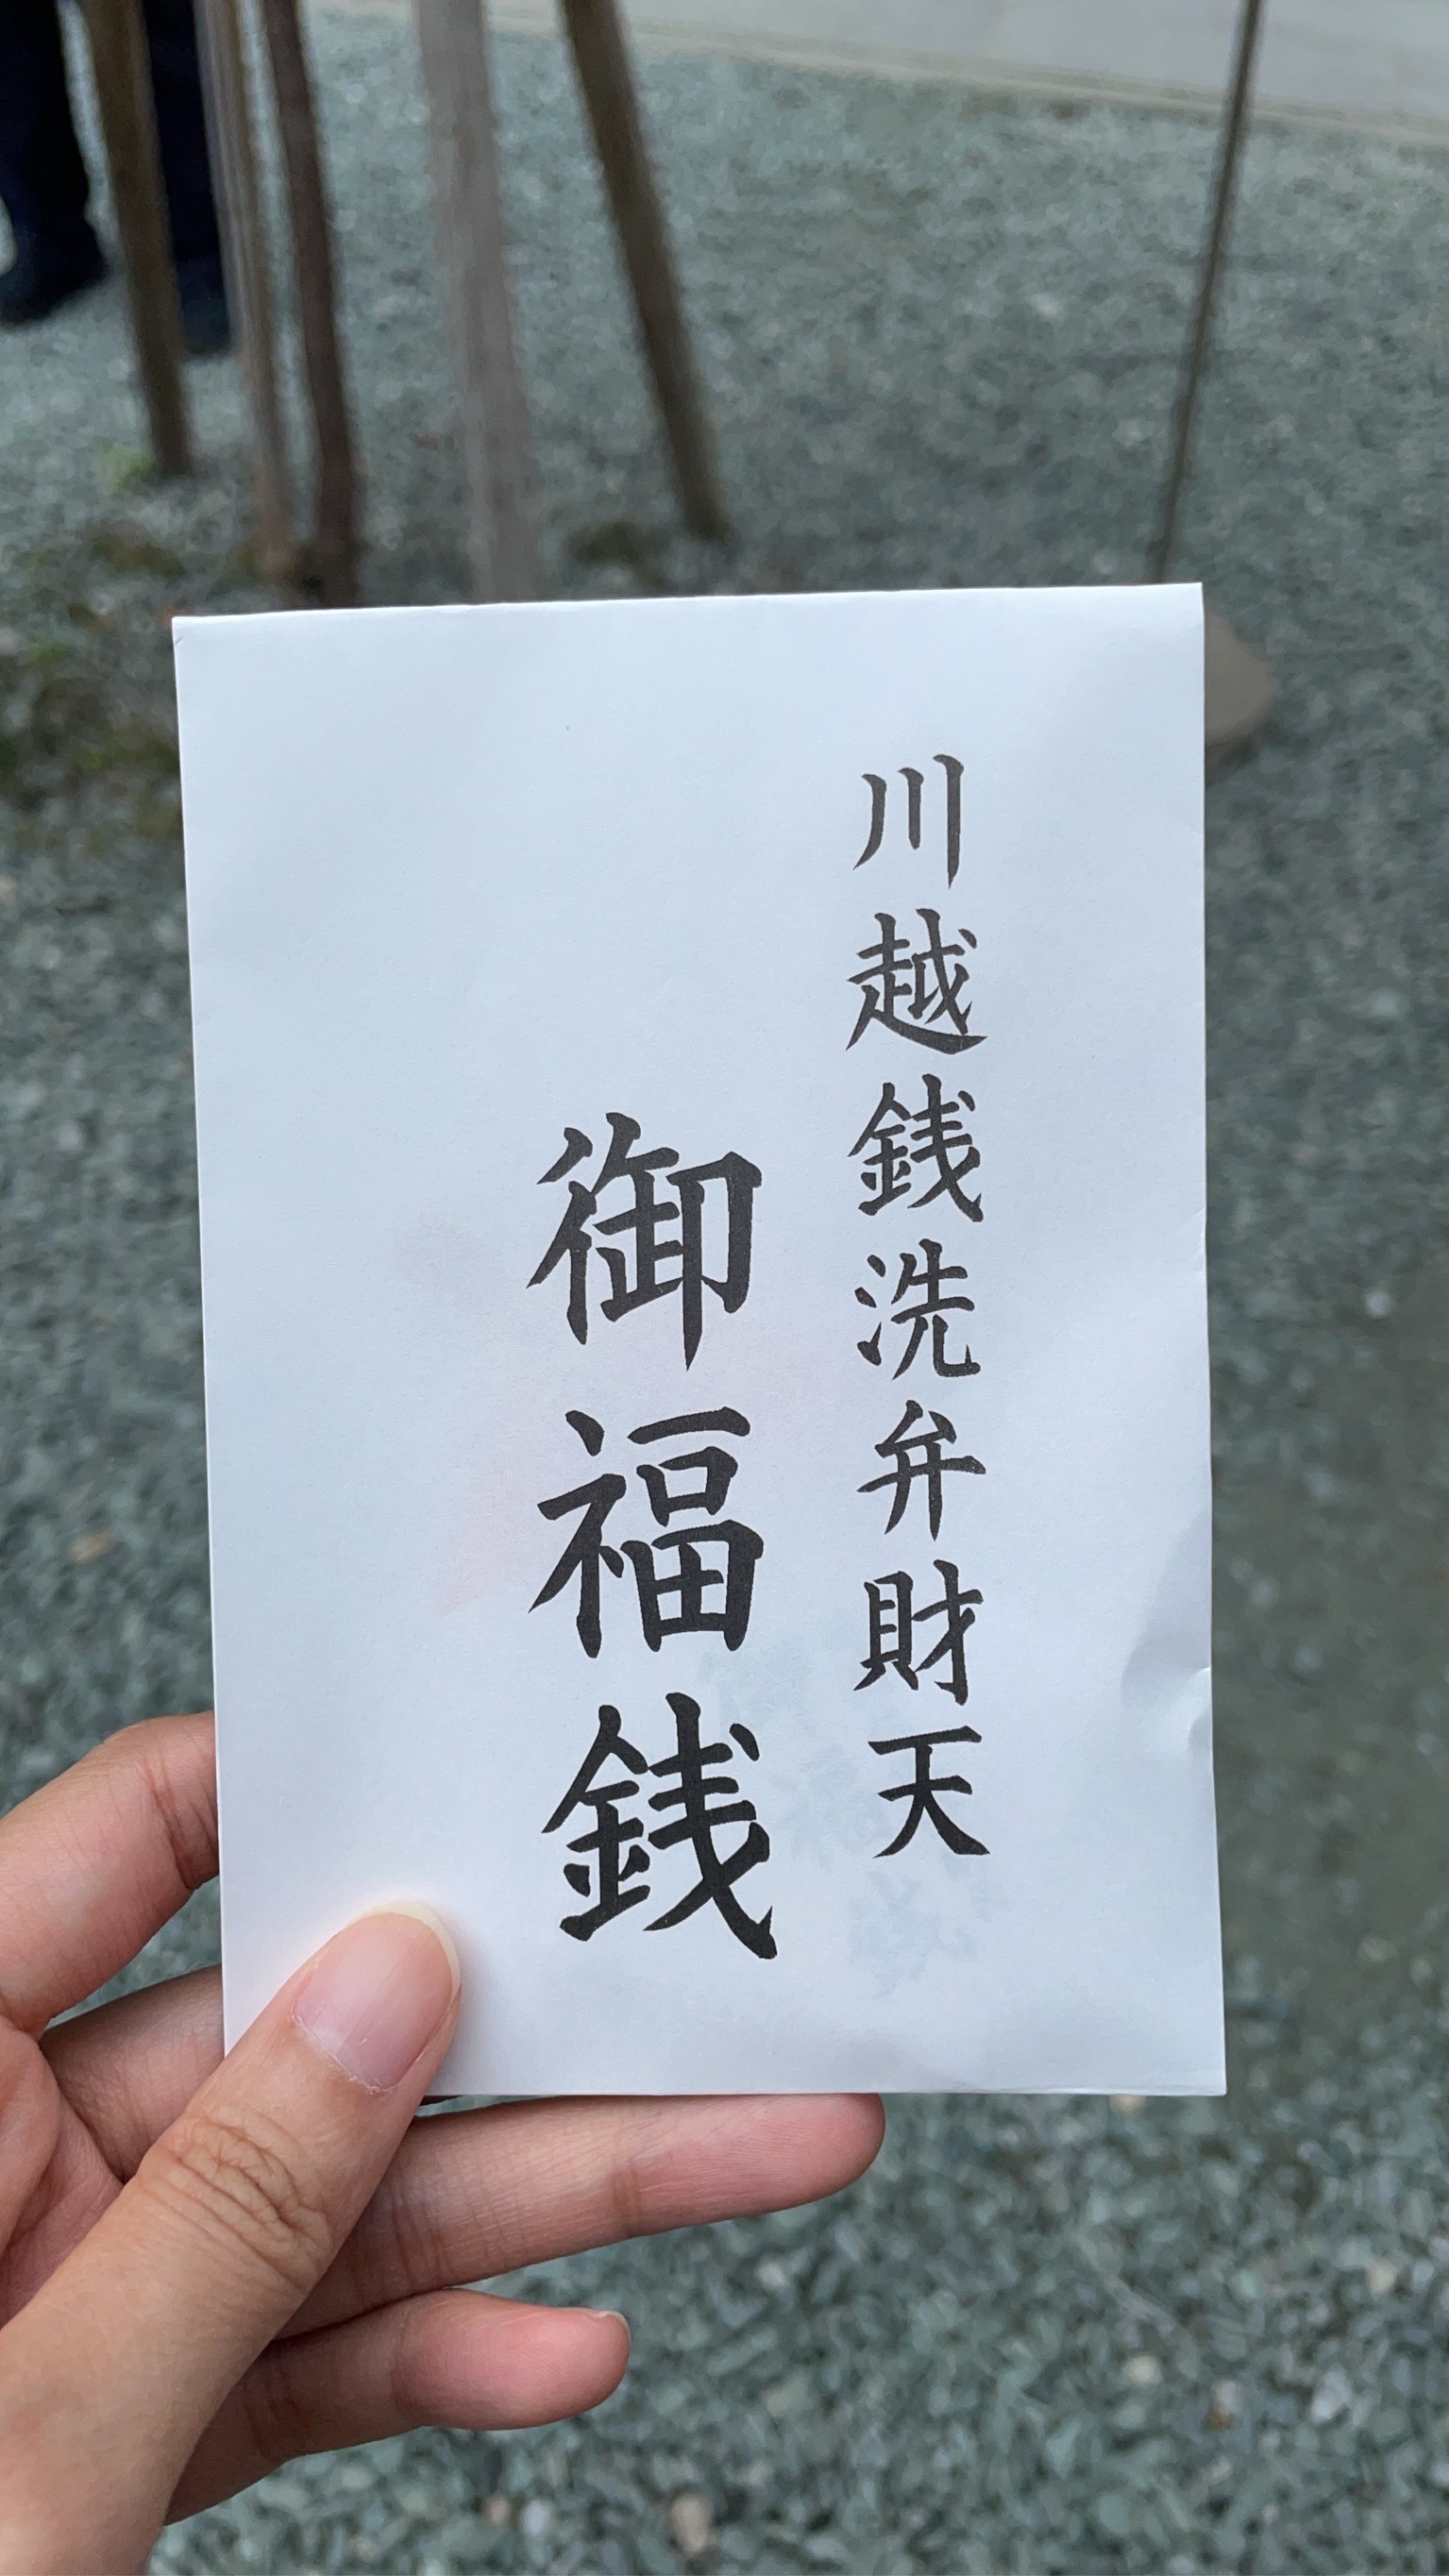 川越銭洗弁財天
御福銭